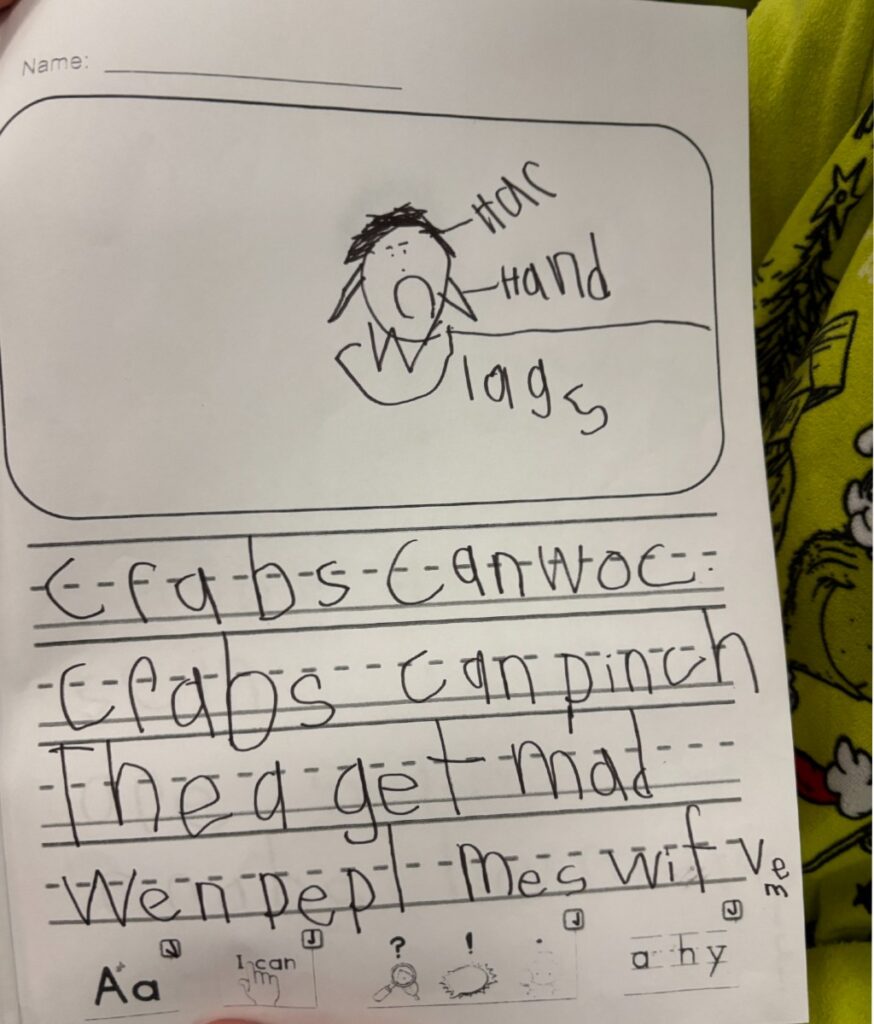 Name:
Har
Hand
lags
Crabs Can woc
Crabs can pinch
Thea get mad
Wen pepl mes wif vem
Aa
I can
? ! .
a h y